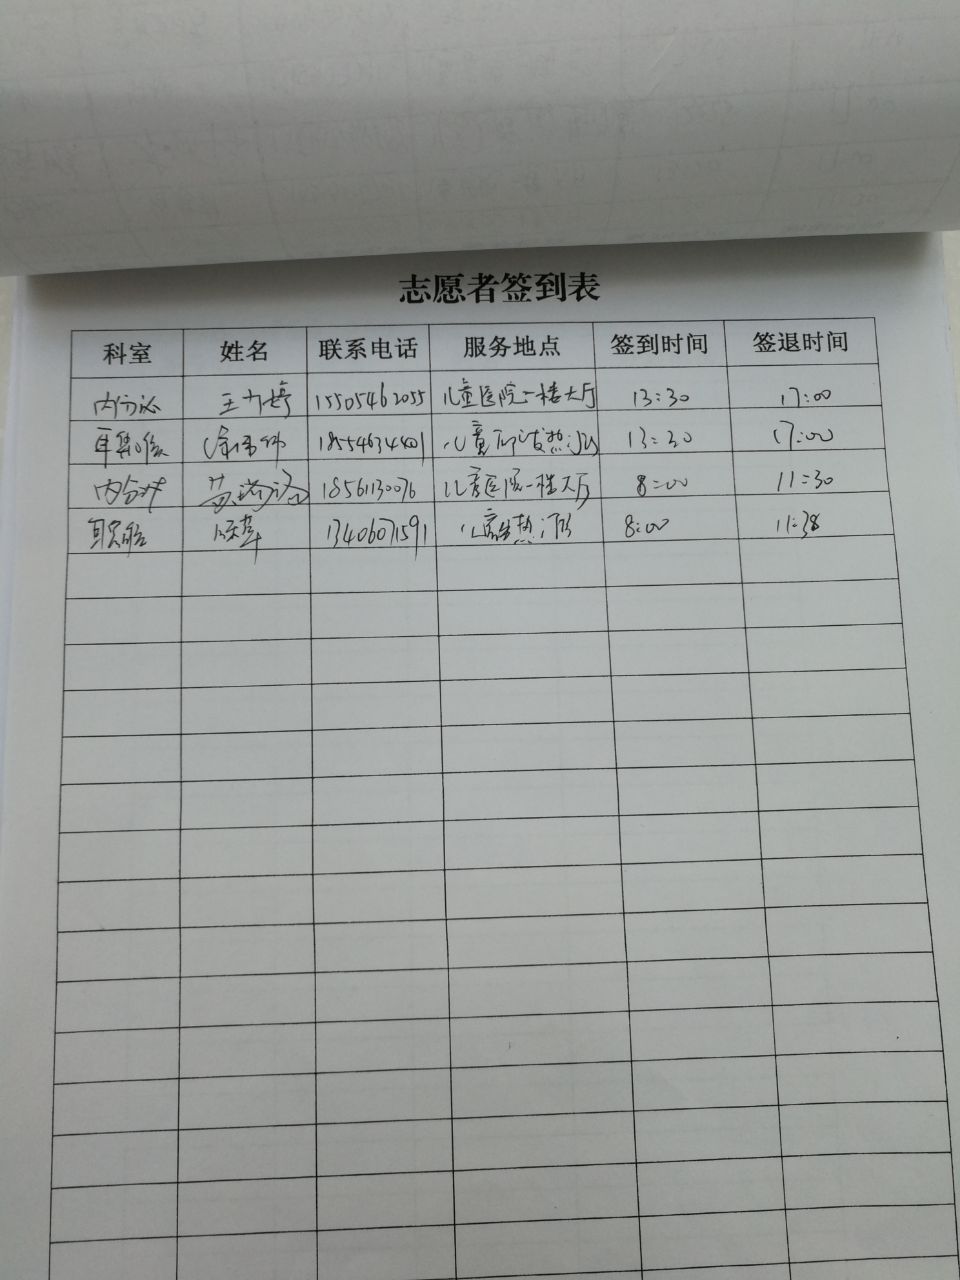 志愿者签到表
科室 姓名 联系电话 服务地点 签到时间 签退时间
内分泌 王 婷 15505462055 儿童医院一楼大厅 13:30 17:00
耳鼻喉 18554634401 儿童 发热 13:30 17:00
内分泌 18561130076 儿童医院一楼大厅 8:00 11:30
13406071591 发热 8:00 11:38